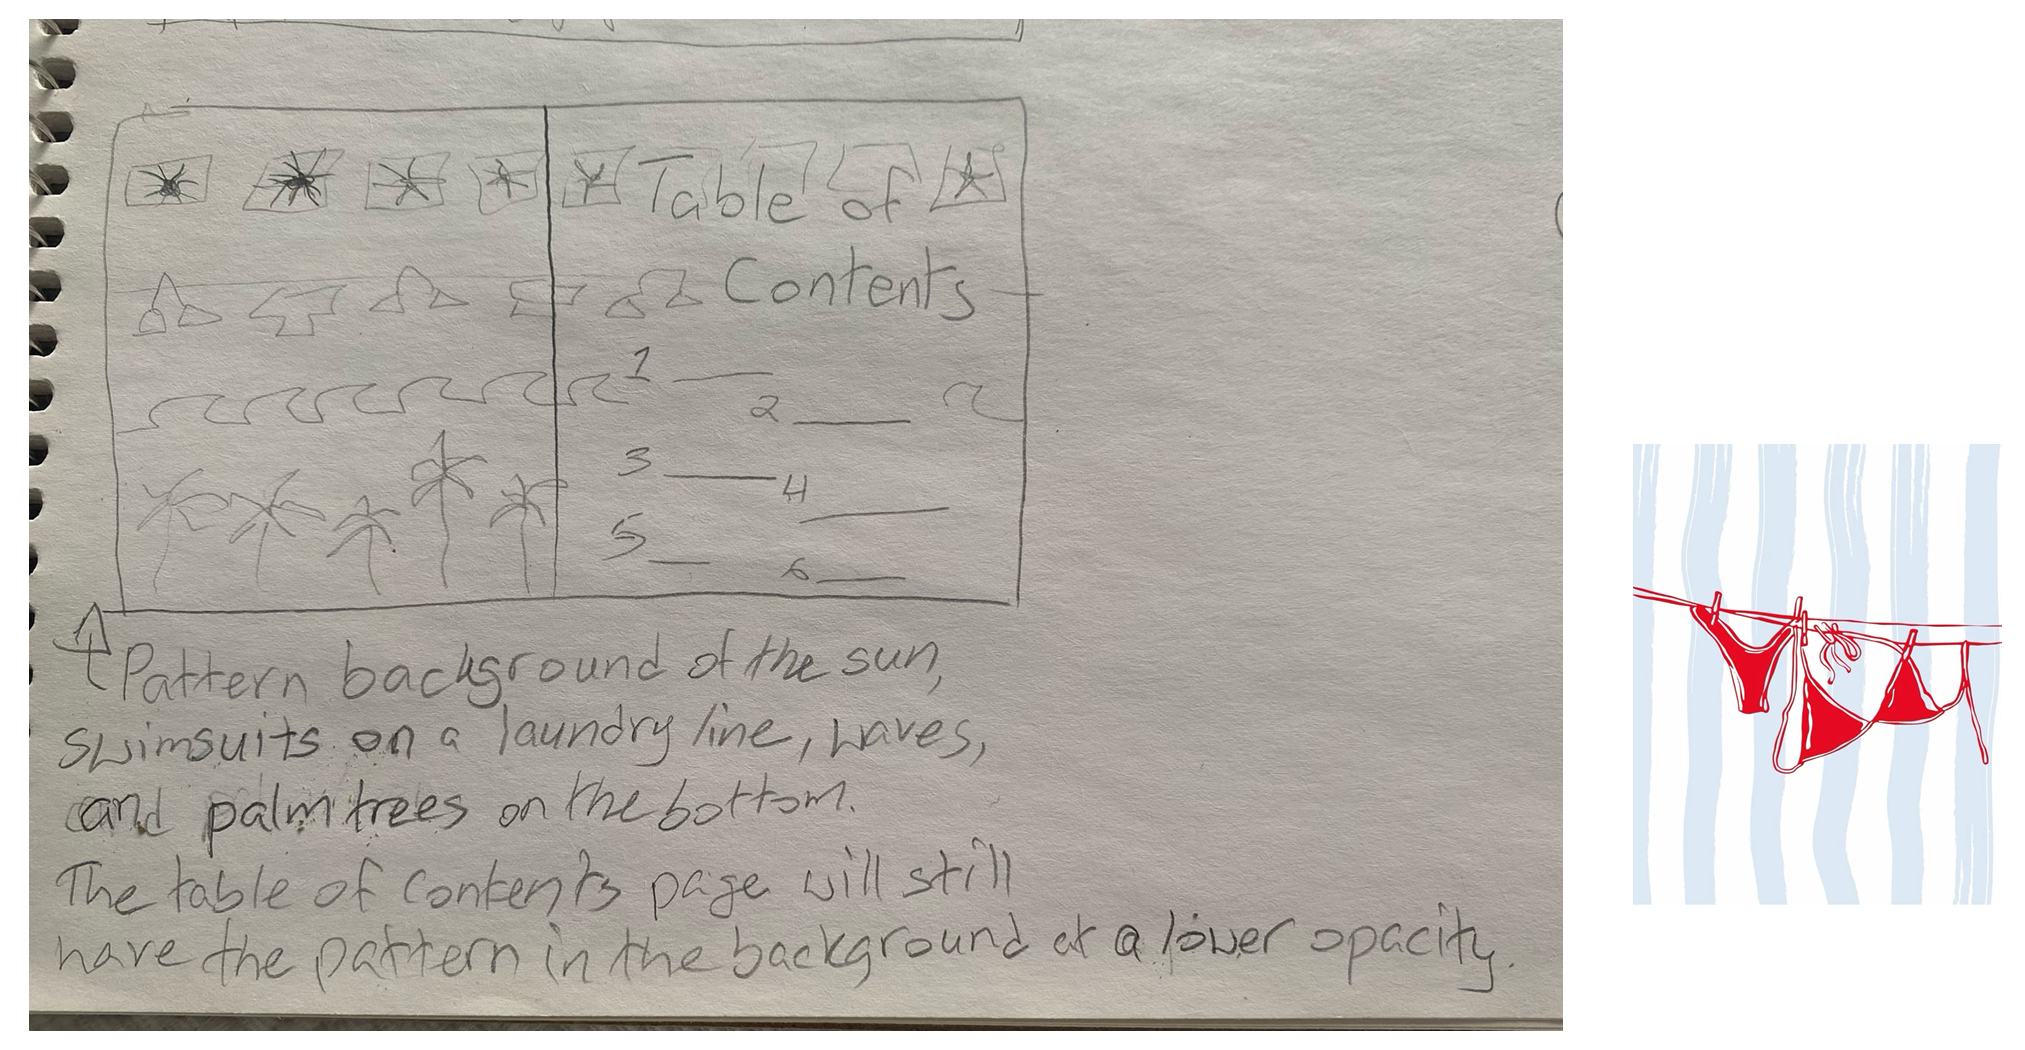 Table of
Contents
1
2
3
4
5
6
Pattern background of the sun,
swimsuits on a laundry line, waves,
and palm trees on the bottom.
The table of contents page will still
have the pattern in the background at a lower opacity.